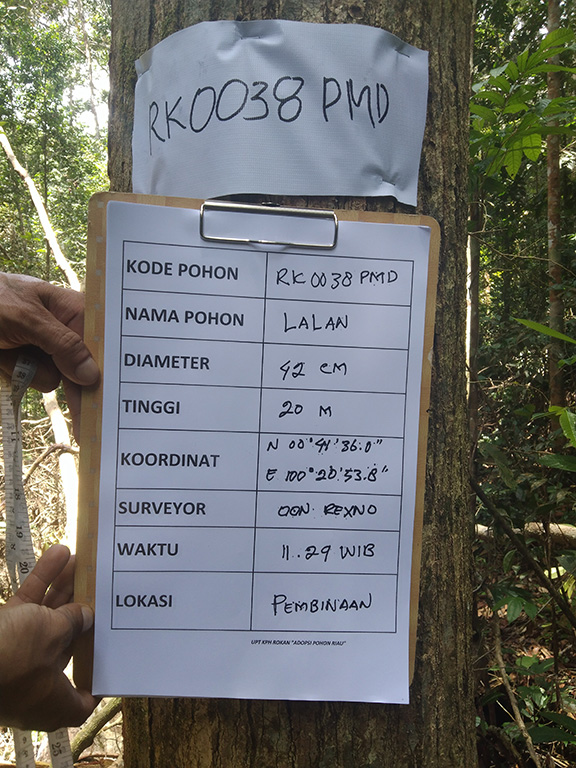 RK0038 PMD
KODE POHON RK0038 PMD
NAMA POHON LALAN
DIAMETER 42 CM
TINGGI 20 M
KOORDINAT N 00°41'36.0"
E 100°20'53.8"
SURVEYOR OON. REXNO
WAKTU 11.29 WIB
LOKASI PEMBINAAN
UPT KPH ROKAN "ADOPSI POHON RIAU"
19
20